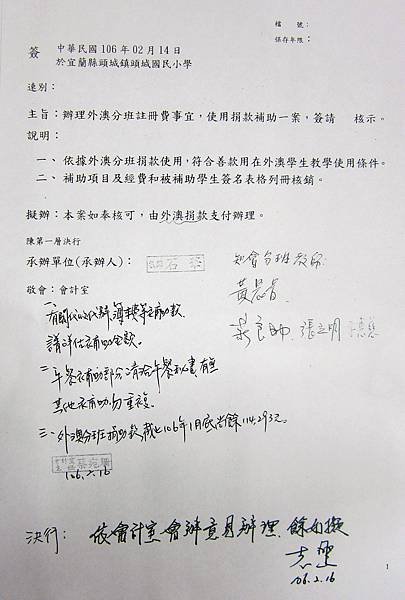 檔　號：
保存年限：
簽　中華民國 106 年 02 月 14 日
於宜蘭縣頭城鎮頭城國民小學
速別：
主旨：辦理外澳分班註冊費事宜，使用捐款補助一案，簽請　核示。
說明：
一、依據外澳分班捐款使用，符合善款用在外澳學生教學使用條件。
二、補助項目及經費和被補助學生簽名表格列冊核銷。
擬辦：本案如奉核可，由外澳捐款支付辦理。
陳第一層決行
承辦單位(承辦人)：
知會分班教師
敬會：會計室
張立明
一、
請詳估補助金額。
二、午餐補助部分請洽午餐秘書有無
其他補助，勿重複。
三、外澳分班捐助款截至106年1月底尚餘114,293元。
106.2.16
決行：依會計室會辦意見辦理，餘如擬
106.2.16
1